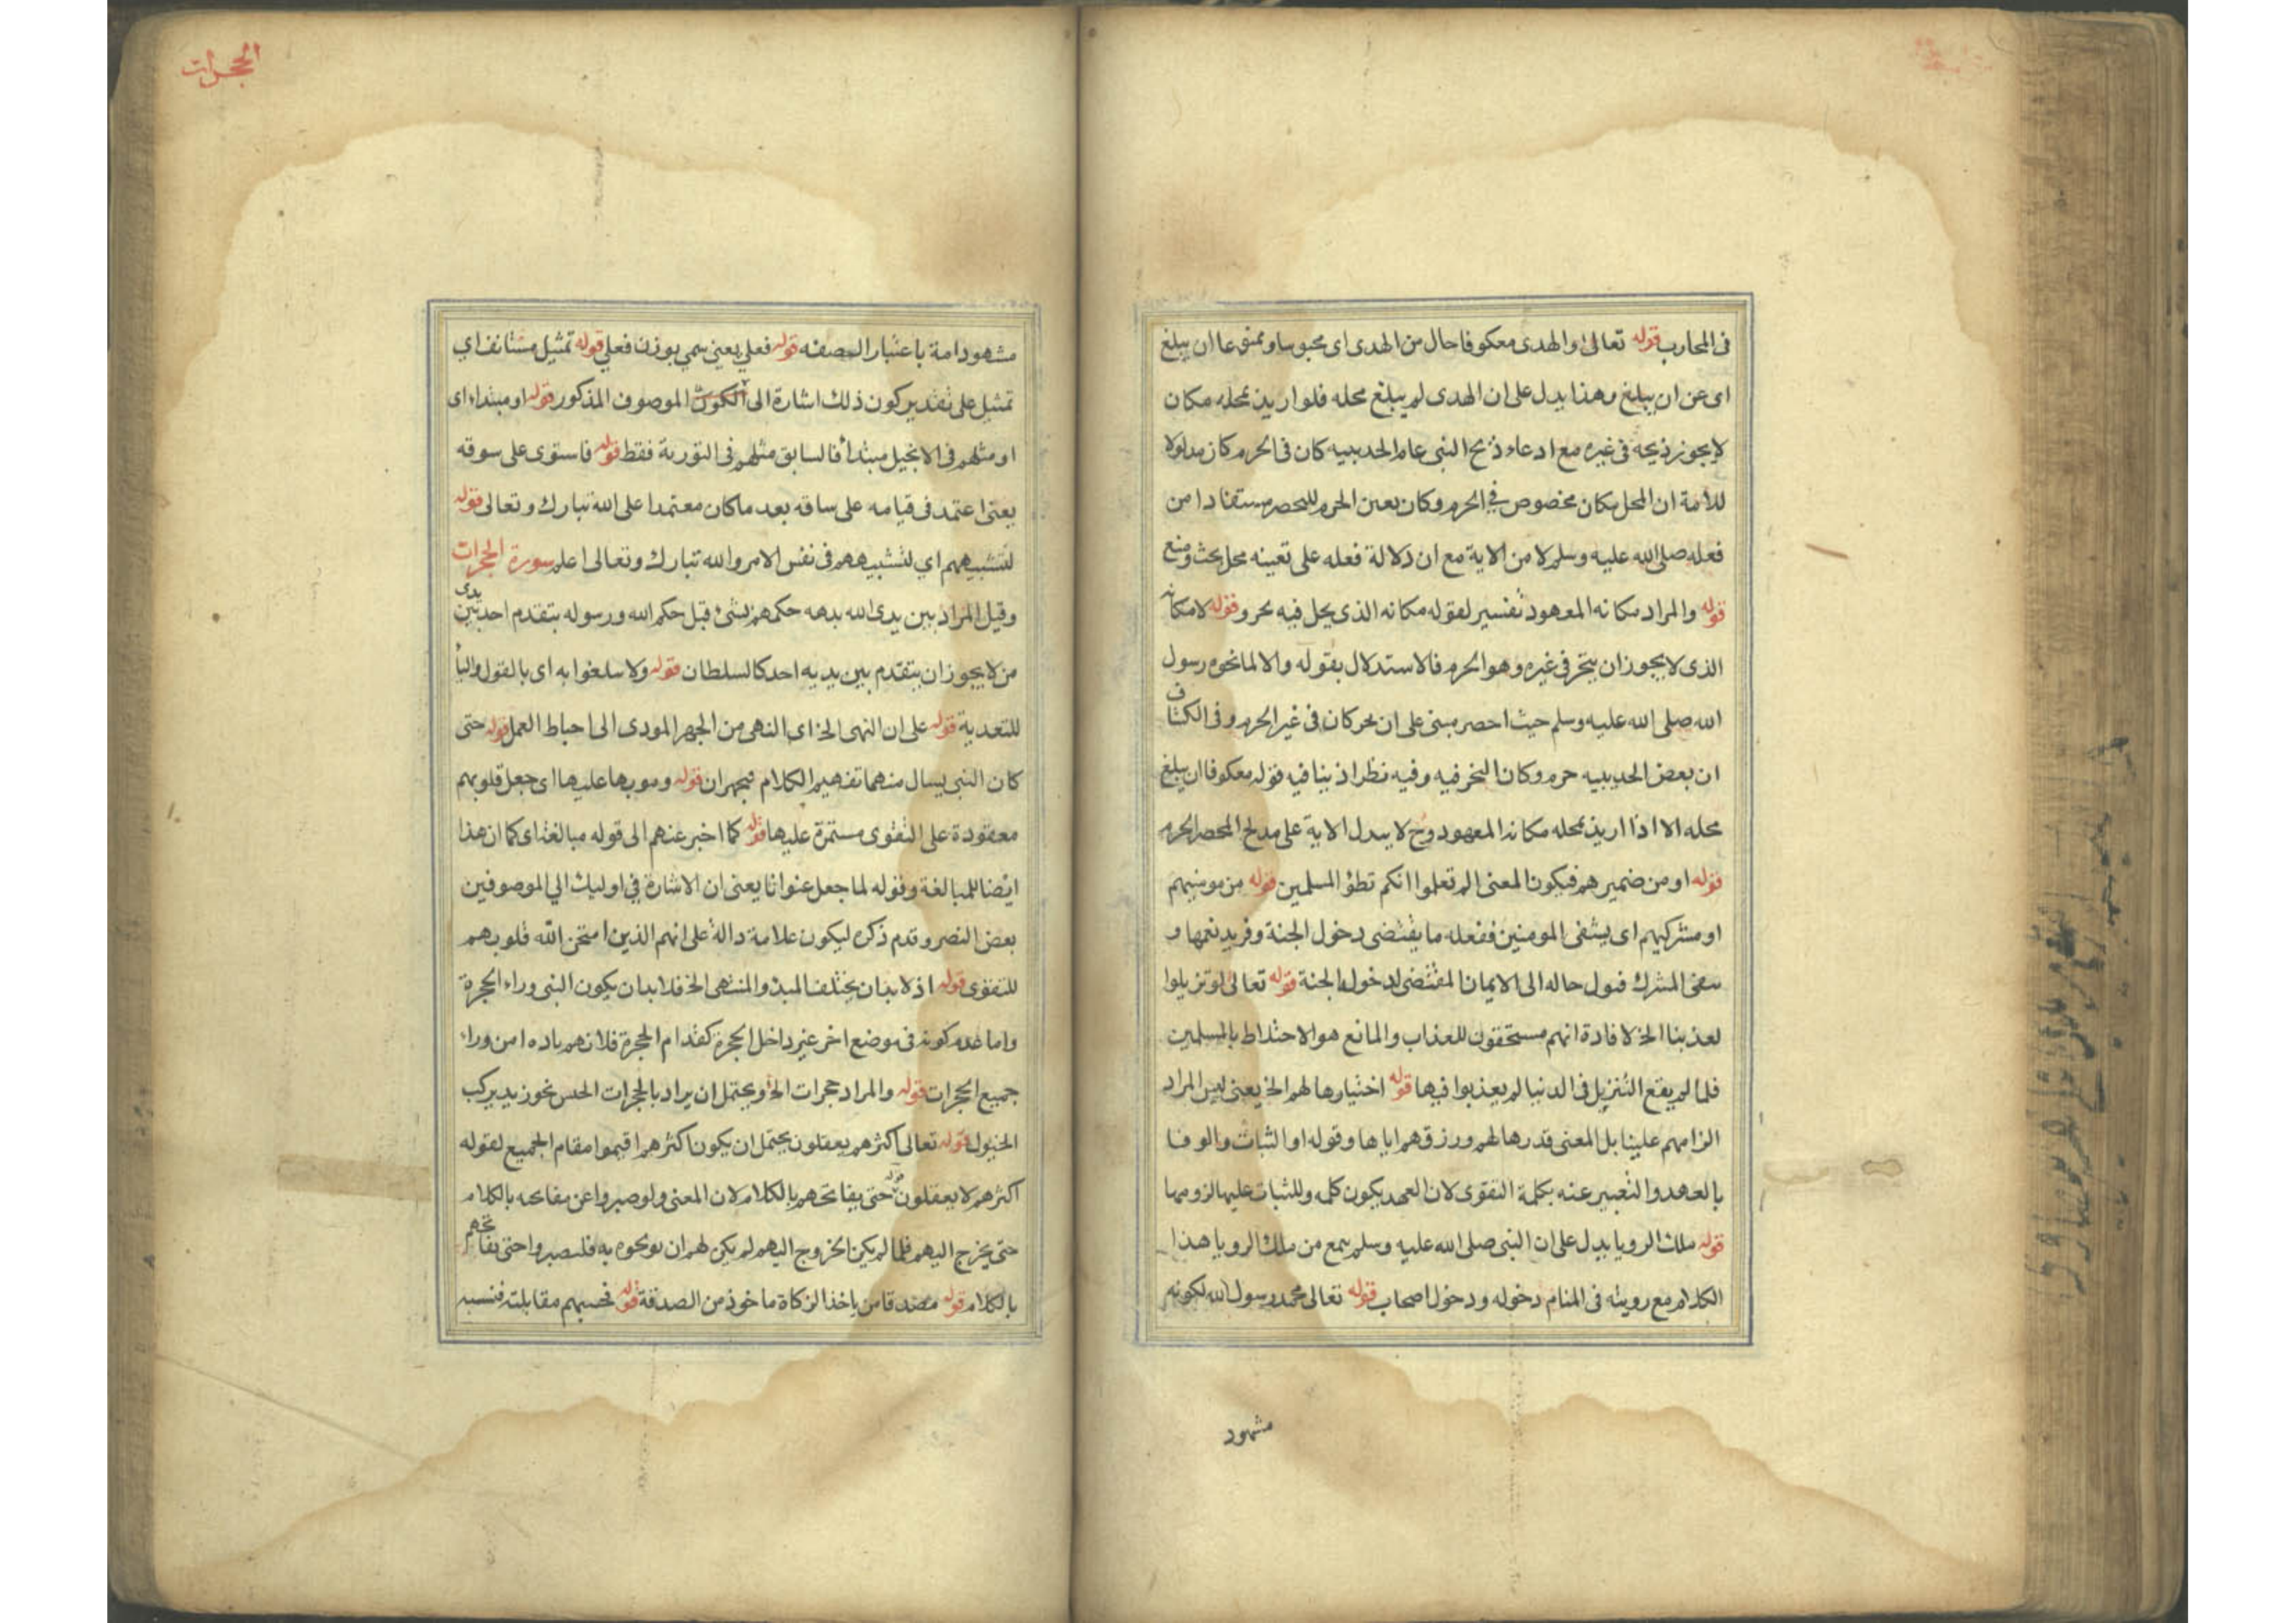 فى المحارب قوله تعالى والهدى معكوفا حال من الهدى اى محبوسا وممنوعا ان يبلغ
اى عن ان يبلغ وهذا يدل على ان الهدى لم يبلغ محله فلو اريد بمحله مكان
لا يجوز ذبحه فى غيره مع ادعاء ذبح النبى عام الحديبيه كان فى الحرم كان مدلولا
للأمة ان المحل مكان مخصوص في الحرم وكان بعين الحرم للحصر مستفادا من
فعله صلى الله عليه وسلم لا من الاية مع ان دلالة فعله على تعينه محل بحث ومنع
قوله والمراد مكانه المعهود تفسير لقوله مكانه الذى يحل فيه نحر وقوله لا مكانه
الذى لا يجوز ان ينحر فى غيره وهو الحرم فالاستدلال بقوله والا لما نحره رسول
الله صلى الله عليه وسلم حيث احصر مبنى على ان نحر كان فى غير الحرم وفى الكشاف
ان بعض الحديبيه حرم وكان النحر فيه وفيه نظر اذ ينافيه قوله معكوفا ان يبلغ
محله الا اذا اريد بمحله مكانه المعهود وح لا يدل الاية على مدبح المحصر الحرم
قوله او من ضمير هم فيكون المعنى الم تعلموا انكم تطؤ المسلمين قوله من مومنيهم
او مشركيهم اى يشفى المومنين ففعله ما يقتضى دخول الجنة ومزيد نعمها و
المشرك قبول حاله الى الايمان المقتضى لدخول الجنة قوله تعالى لو تزيلوا
لعذبنا الخ لافادة انهم مستحقون للعذاب والمانع هو الاختلاط بالمسلمين
فلما لم يقع التنزيل فى الدنيا لم يعذبوا فيها قوله اختيارها لهم الخ يعنى ليس المراد
الزامهم علينا بل المعنى قدرها لهم ورزقهم اياها وقوله او الثبات والوفا
بالعهد والتعبير عنه بكلمة التقوى لان العهد يكون كلمه وللثبات عليها لزومها
قوله ملك الرويا يدل على ان النبى صلى الله عليه وسلم سمع من ملك الرويا هذا
الكلام مع رويته فى المنام دخوله ودخول اصحاب قوله تعالى محمد رسول الله لكونه
مشهود
الحجرات
مشهودا مة باعتبار الصفه قوله فعلي يعنى سمي بوزن فعلي قوله تمثيل مستانف اي
تمثيل على تقدير كون ذلك اشارة الى الكون الموصوف المذكور قوله او مبتداء اى
او مثلهم فى الانجيل مبتدأ فالسابق مثلهم فى التورية فقط قوله فاستوى على سوقه
يعنى اعتمد فى قيامه على ساقه بعد ما كان معتمدا على الله تبارك وتعالى قوله
لتشبيههم اي لتشبيههم فى نفس الامر والله تبارك وتعالى اعلم سورة الحجرات
وقيل المراد بين يدى الله بدهه حكمهم بشئ قبل حكم الله ورسوله بتقدم احد بين يدى
من لا يجوز ان يتقدم بين يديه احد كالسلطان قوله ولا سلغوا به اى بالقول والبأ
للتعدية قوله على ان النهى الخ اى النهى من الجهر المودى الى احباط العمل قوله حتى
كان النبى يسال منهما تفهيم الكلام فيجهران قوله ومربها عليها اى جعل قلوبهم
معقودة على التقوى مستمرة عليها قوله كما اخبر عنهم الى قوله مبالغة اى كما ان هذا
ايضا للمبالغة وقوله لما جعل عنوانا يعنى ان الاشارة في اوليك الي الموصوفين
بعض النصر وقدم ذكره ليكون علامة دالة على انهم الذين امتحن الله قلوبهم
للتقوى قوله اذ لابد ان يختلف المبدء والمنتهى الخ فلابد ان يكون النبى وراء الحجرة
واما عدم كونه فى موضع اخر غير داخل الحجرة كقدام الحجرة فلانهم نادوه من وراء
جميع الحجرات قوله والمراد حجرات الخ ويحتمل ان يراد بالحجرات الجنس نحو زيد يركب
الخيول قوله تعالى اكثرهم يعقلون يحتمل ان يكون اكثرهم اقيموا مقام الجميع لقوله
اكثرهم لا يعقلون قوله حتى يفاتحهم بالكلام لان المعنى ولو صبروا عن مفاتحه بالكلام
حتى يخرج اليهم فلما لم يكن الخروج اليهم لم يكن لهم ان يوجوه به فليصبروا حتى يفاتحهم
بالكلام قوله مصدقا من ياخذ الزكاة ماخوذ من الصدقة قوله فحسبهم مقابلته فنسبه